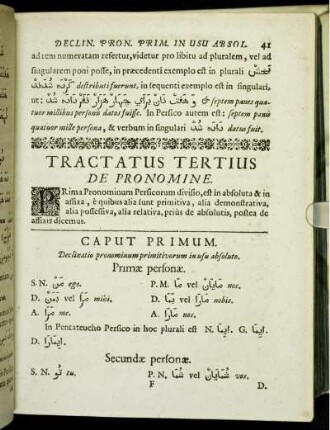 DECLIN. PRON. PRIM. IN USU ABSOL. 41
ad rem numeratam refertur, videtur pro libitu ad pluralem, vel ad
singularem poni posse, in præcedenti exemplo est in plurali
کرده شدند destributi fuerunt, in sequenti exemplo est in singulari,
ut: و هفت نان برای چهار هزار نفر داده شد & septem panes qua-
tuor millibus personis datos fuisse. In Persico autem est: septem panis
quatuor mille persona, & verbum in singulari داده شد datus fuit.
TRACTATUS TERTIUS
DE PRONOMINE.
PRima Pronominum Persicorum divisio, est in absoluta & in
affixa, è quibus alia sunt primitiva, alia demonstrativa,
alia possessiva, alia relativa, priùs de absolutis, postea de
affixis dicemus.
CAPUT PRIMUM.
Declinatio pronominum primitivorum in usu absoluto.
Primæ personæ.
S. N. من ego. P. M. ما vel مایان nos.
D. بمن vel مرا mihi. D. بما vel مارا nobis.
A. مرا me. A. مارا nos.
In Pentateucho Persico in hoc plurali est N. ایما. G. ایما.
D. ایمارا.
Secundæ personæ.
S. N. تو tu. P. N. شما vel شمایان vos.
F D.